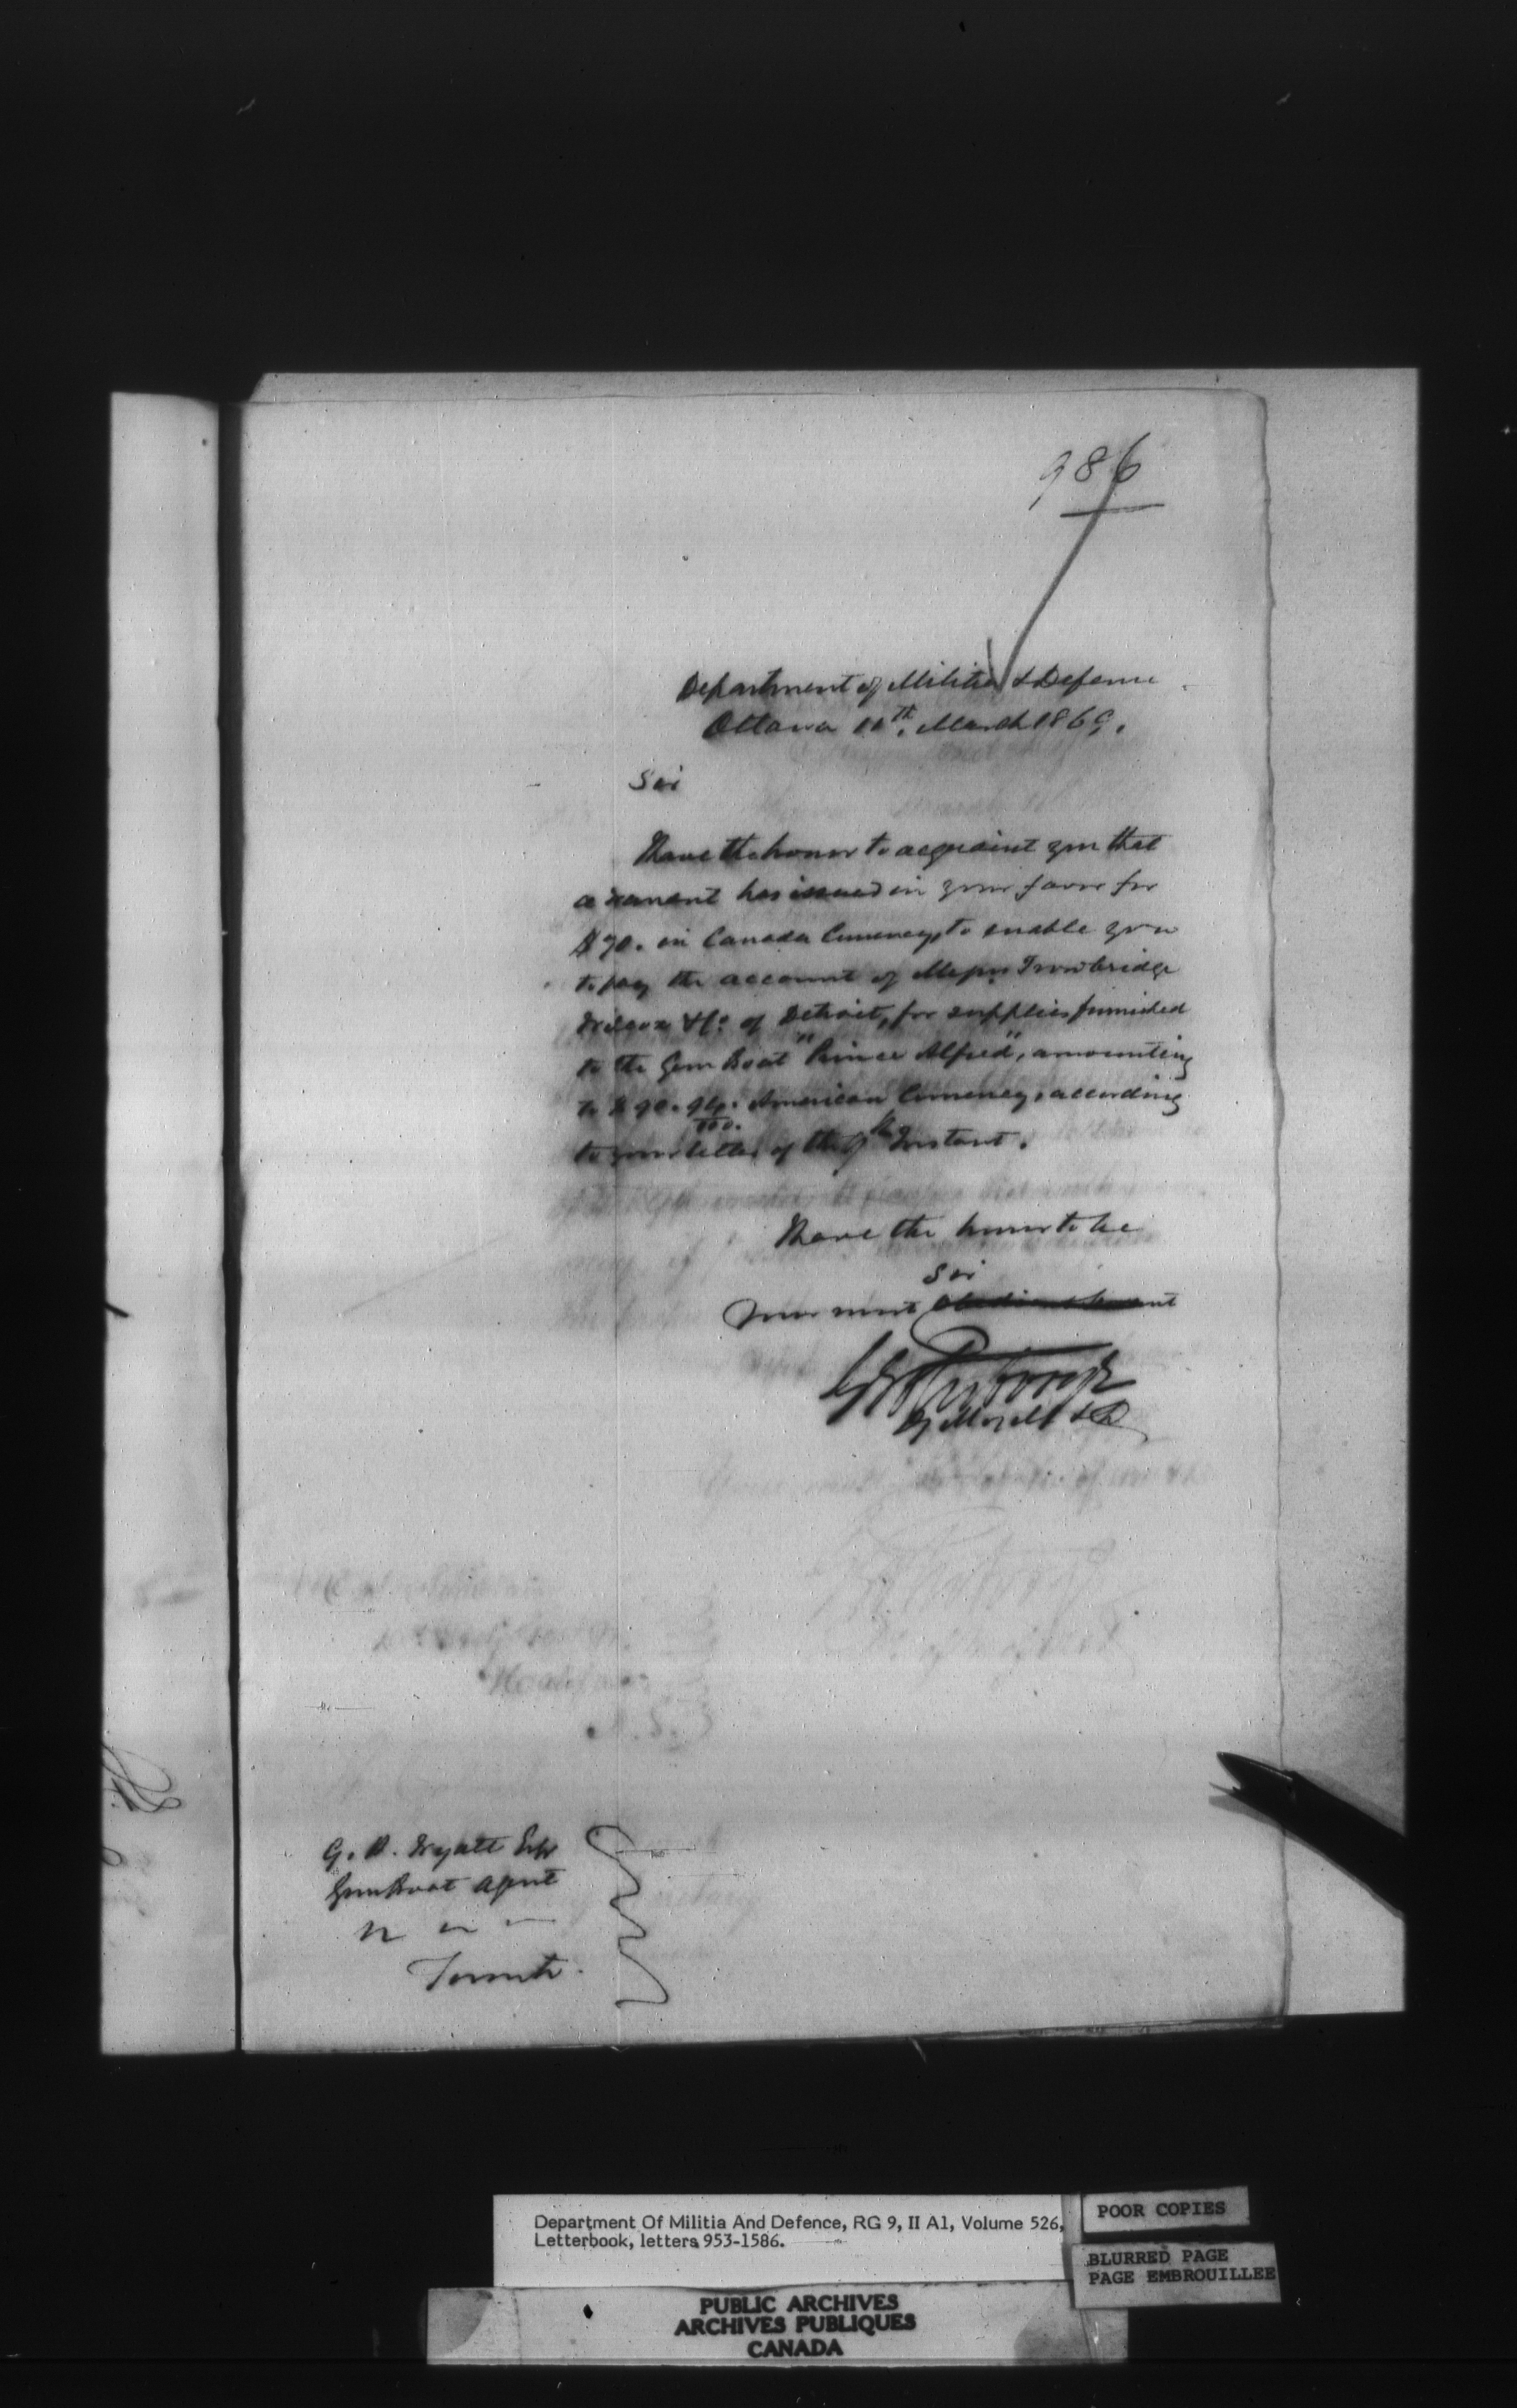 986
Department of Militia & Defence
Ottawa 11th. March 1869.
Sir
I have the honor to acquaint you that
a warrant has issued in your favor for
$70. in Canada Currency, to enable you
to pay the account of Messrs Trowbridge
Wilcox & Co. of Detroit, for supplies furnished
to the Gun Boat "Prince Alfred", amounting
to $ American Currency, according
to your letter of the 9th Instant.
I have the honor to be
Sir
Your most Obedient Servant
G. A. Wyatt Esqr
Gun Boat Agent
Toronto.
Department Of Militia And Defence, RG 9, II A1, Volume 526,
Letterbook, letters 953-1586.
POOR COPIES
BLURRED PAGE
PAGE EMBROUILLEE
PUBLIC ARCHIVES
ARCHIVES PUBLIQUES
CANADA